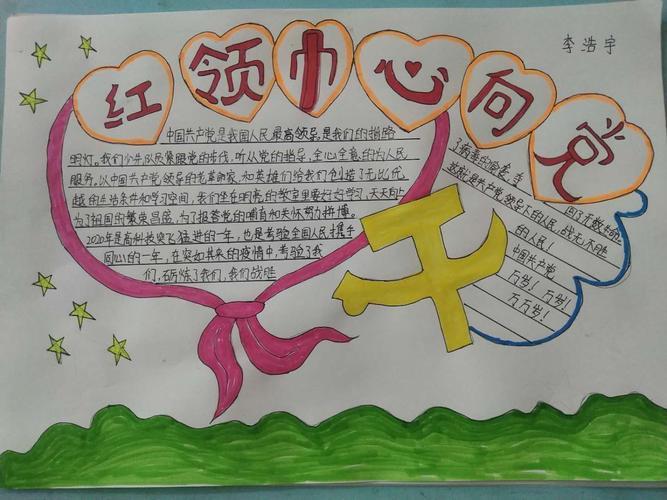 红领巾心向党
李浩宇
中国共产党是我国人民最高领导,是我们的指路
明灯。我们少先队员紧跟党的步伐,听从党的指导,全心全意的为人民
服务。以中国共产党领导的先革命家,和英雄们给我们创造了无比优
越的生活条件和学习空间,我们坐在明亮的教室里要好好学习,天天向上
为了祖国的繁荣昌盛,为了报答党的哺育和关怀努力拼搏。
2020年是高科技突飞猛进的一年,也是考验全国人民携手
同心的一年,在突如其来的疫情中,考验了我
们,砺炼了我们,我们战胜
了病毒的
回了无数
这就是共产党领导下的人民,战无不胜
的人民!
中国共产党
万岁!万岁!
万万岁!